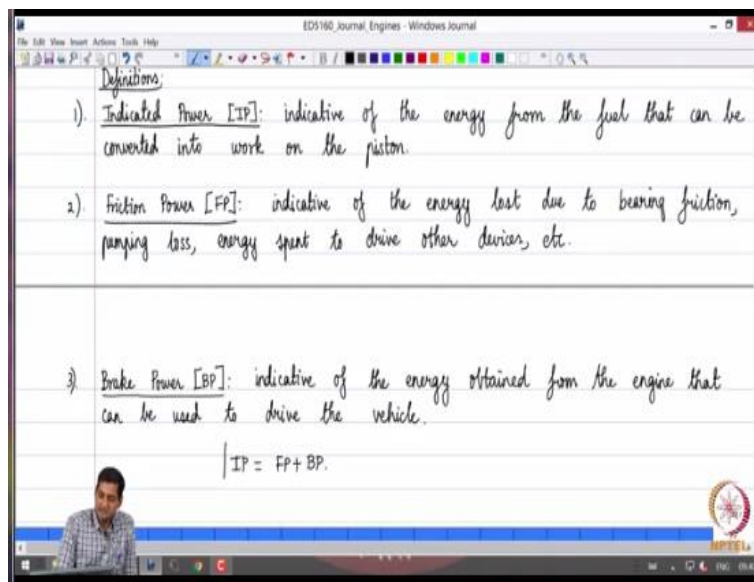 ED5160_Journal_Engines - Windows Journal
File Edit View Insert Actions Tools Help
Definitions:
1). Indicated Power [IP]: indicative of the energy from the fuel that can be
converted into work on the piston.
2). Friction Power [FP]: indicative of the energy lost due to bearing friction,
pumping loss, energy spent to drive other devices, etc.
3) Brake Power [BP]: indicative of the energy obtained from the engine that
can be used to drive the vehicle.
IP = FP + BP.
NPTEL
ENG